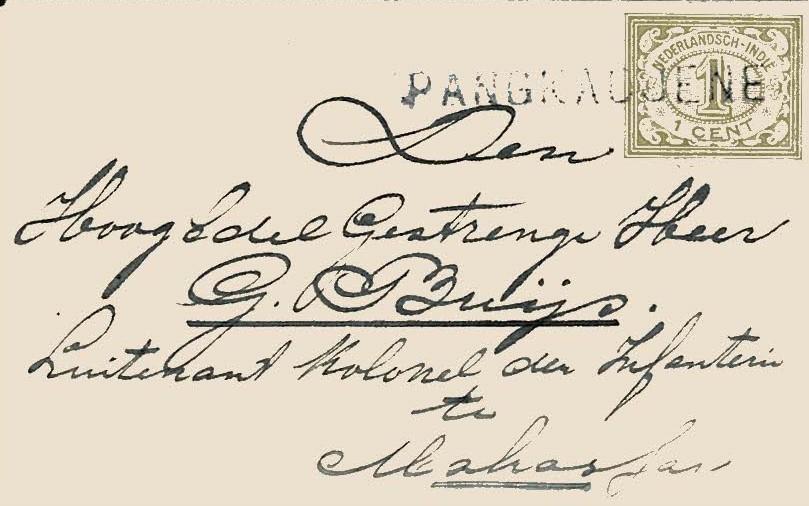 NEDERLANDSCH-INDIË
1
1 CENT
PANGKADJENE
Den
HoogEdel Gestrenge Heer
G. Buijs.
Luitenant Kolonel der Infanterie
te
Makassar